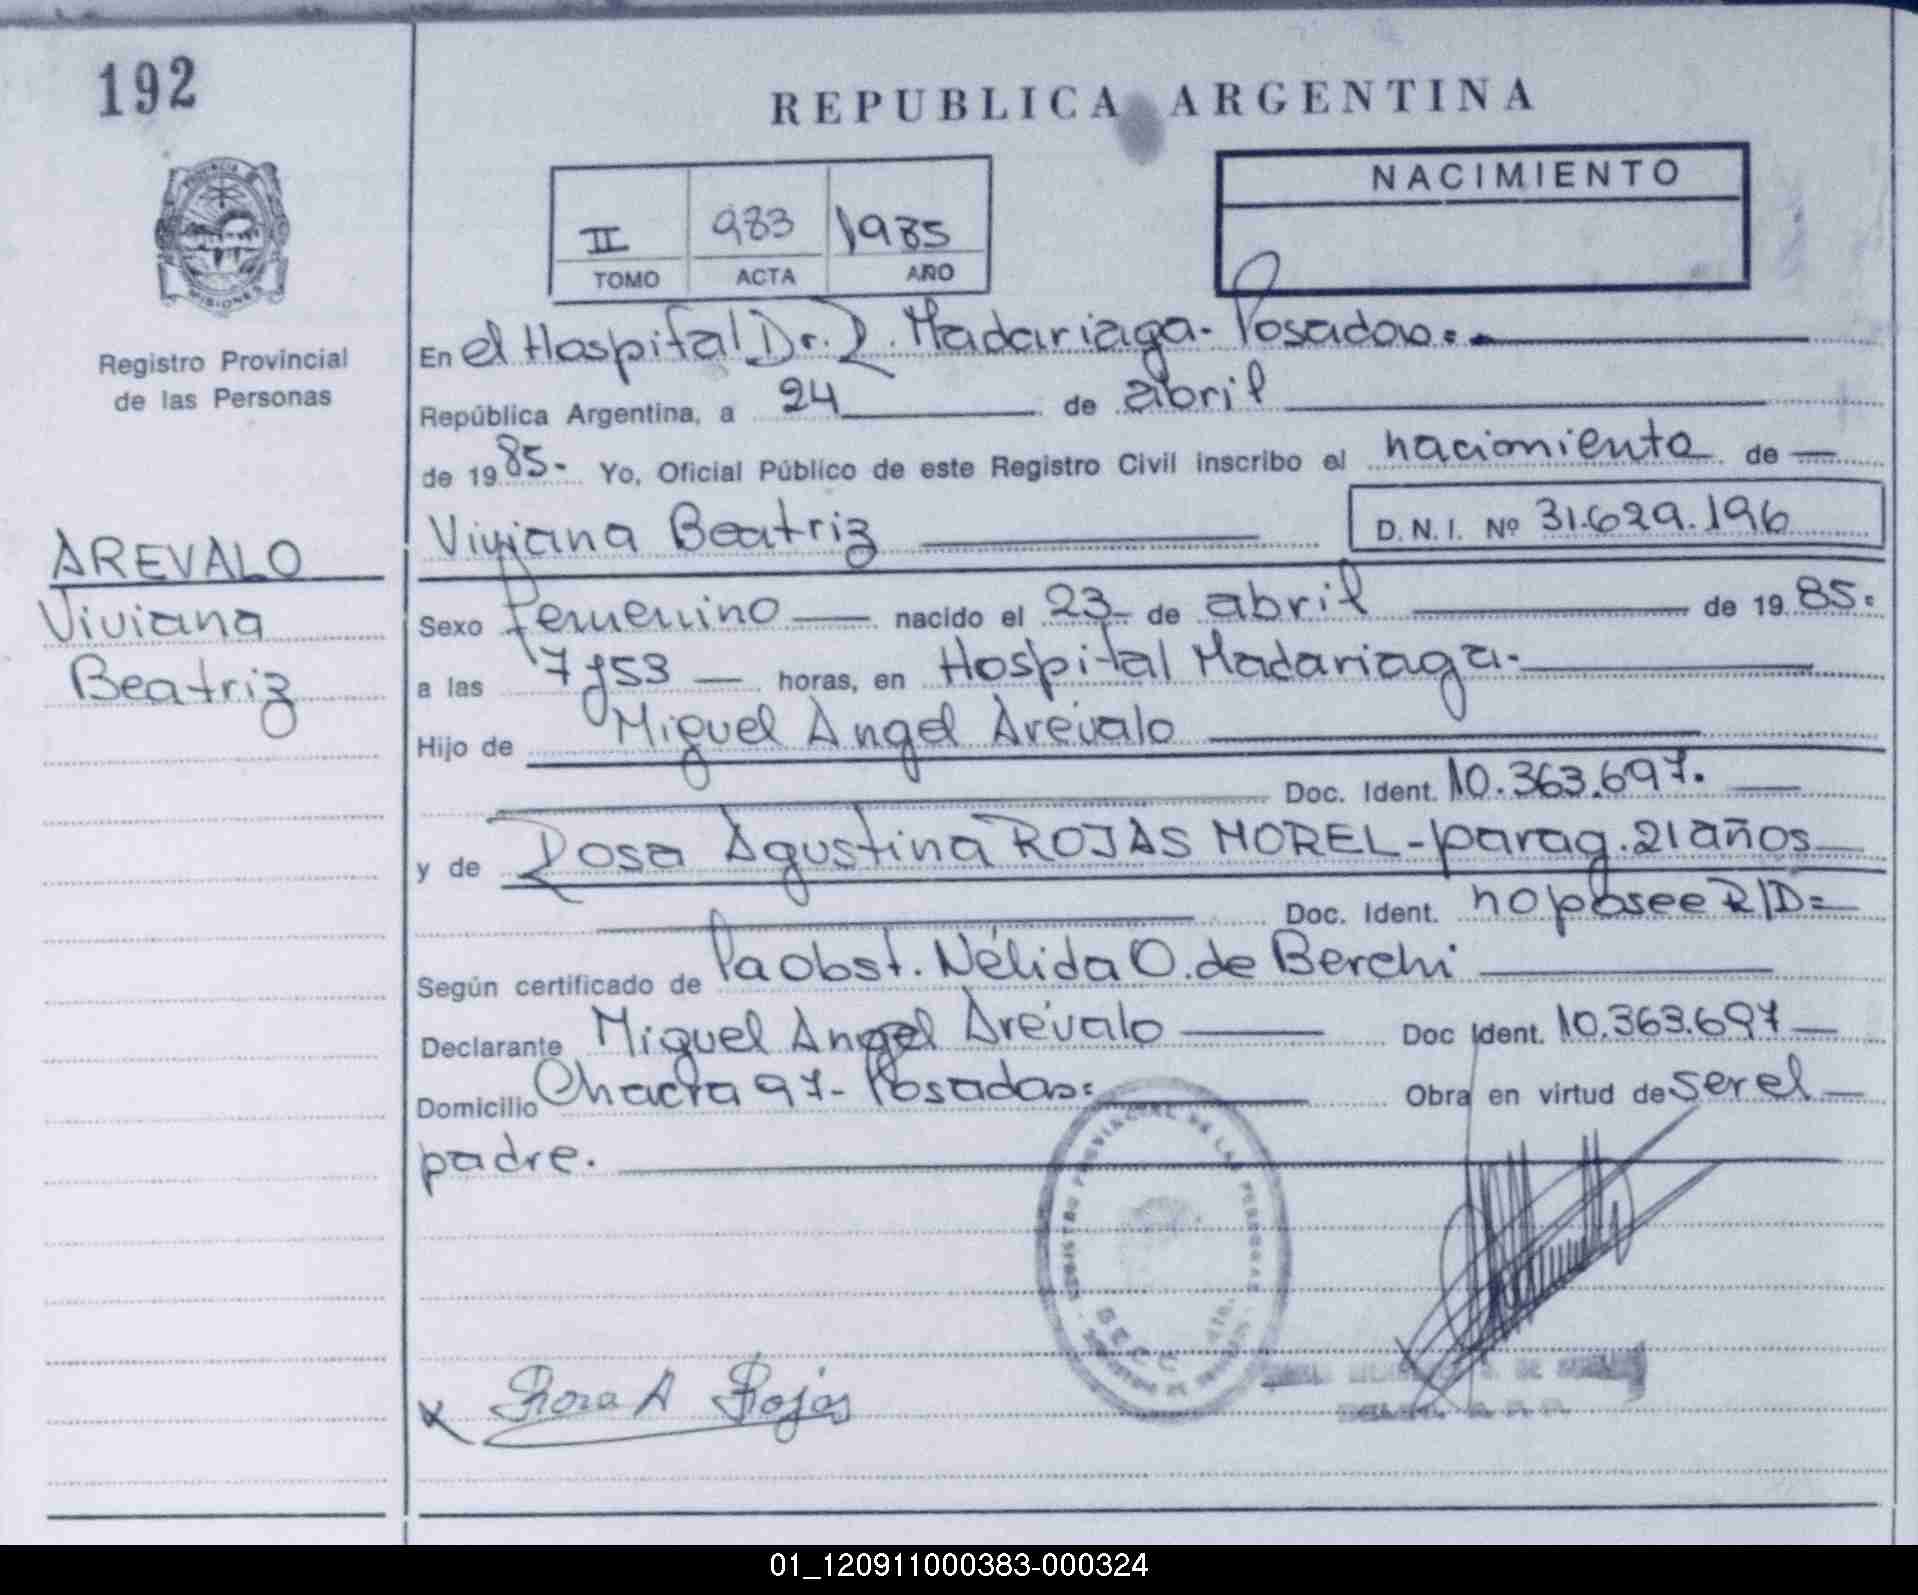 192
REPUBLICA ARGENTINA
PROVINCIA DE
MISIONES
Registro Provincial
de las Personas
II 983 1985
TOMO ACTA AÑO
NACIMIENTO
En el Hospital Dr. R. Madariaga - Posadas =
República Argentina, a 24 de abril
de 1985 - Yo, Oficial Público de este Registro Civil inscribo el nacimiento de
Viviana Beatriz D. N. I. Nº 31.629.196
AREVALO
Viviana
Beatriz
Sexo femenino nacido el 23 de abril de 1985 =
a las 7 y 53 horas, en Hospital Madariaga -
Hijo de Miguel Angel Arévalo
Doc. Ident. 10.363.697.
y de Rosa Agustina ROJAS MOREL - parag. 21 años
Doc. Ident. no posee R/D =
Según certificado de la obst. Nélida O. de Berchi
Declarante Miguel Angel Arévalo Doc Ident. 10.363.697
Domicilio Chacra 97 - Posadas = Obra en virtud de ser el
padre.
REGISTRO PROVINCIAL DE LAS PERSONAS
x Rosa A Rojas
01_120911000383-000324